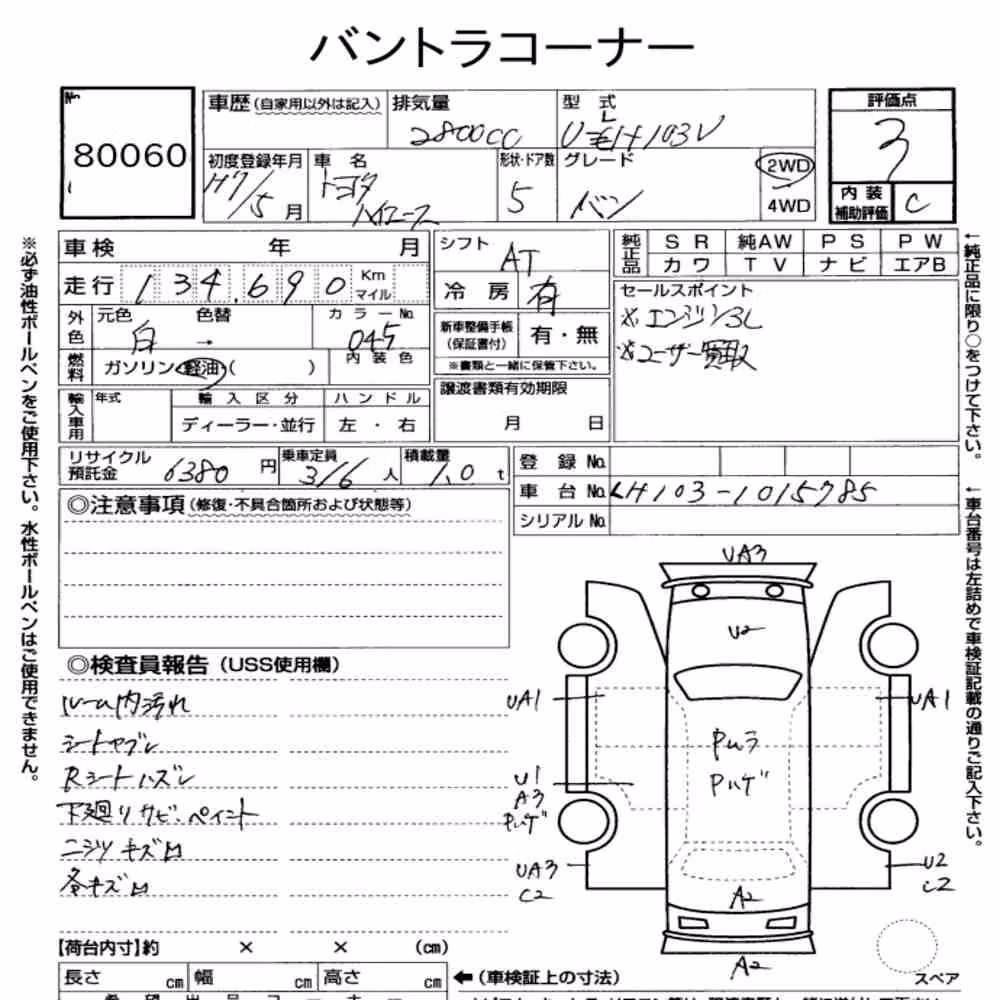 バントラコーナー
No.
80060
車歴 (自家用以外は記入)
排気量
2800CC
型 式
L
評価点
3
初度登録年月
H7/5 月
車 名
トヨタ
ハイエース
形状・ドア数
5
グレード
バン
2WD
4WD
内 装
補助評価
C
車 検 年 月
走行 134.690 Km マイル
外色
元色 白
色替 →
カラーNo. 045
燃料
ガソリン・軽油・( )
内装色
輸入車用
年式
輸入区分
ディーラー・並行
ハンドル
左・右
シフト
AT
冷 房
有
新車整備手帳
(保証書付)
有・無
※書類と一緒に保管下さい。
譲渡書類有効期限
月 日
純正品
SR 純AW PS PW
カワ TV ナビ エアB
セールスポイント
※エンジン3L
※ユーザー買取
リサイクル
預託金
6380 円
乗車定員
3/6 人
積載量
1.0 t
登 録 No.
車 台 No. LH103-1015785
シリアル No.
◎注意事項 (修復・不具合箇所および状態等)
◎検査員報告 (USS使用欄)
ルーム内汚れ
シートヤブレ
Rシートハズレ
下廻りサビ・ペイント
各キズ凹
UA3
U2
UA1
UA1
U1
A3
UA3
C2
U2
C2
A2
A2
スペア
【荷台内寸】約 × × (cm)
長さ cm 幅 cm 高さ cm
← (車検証上の寸法)
※必ず油性ボールペンをご使用下さい。水性ボールペンはご使用できません。
←純正品に限り○をつけて下さい。
←車台番号は左詰めで車検証記載の通りご記入下さい。